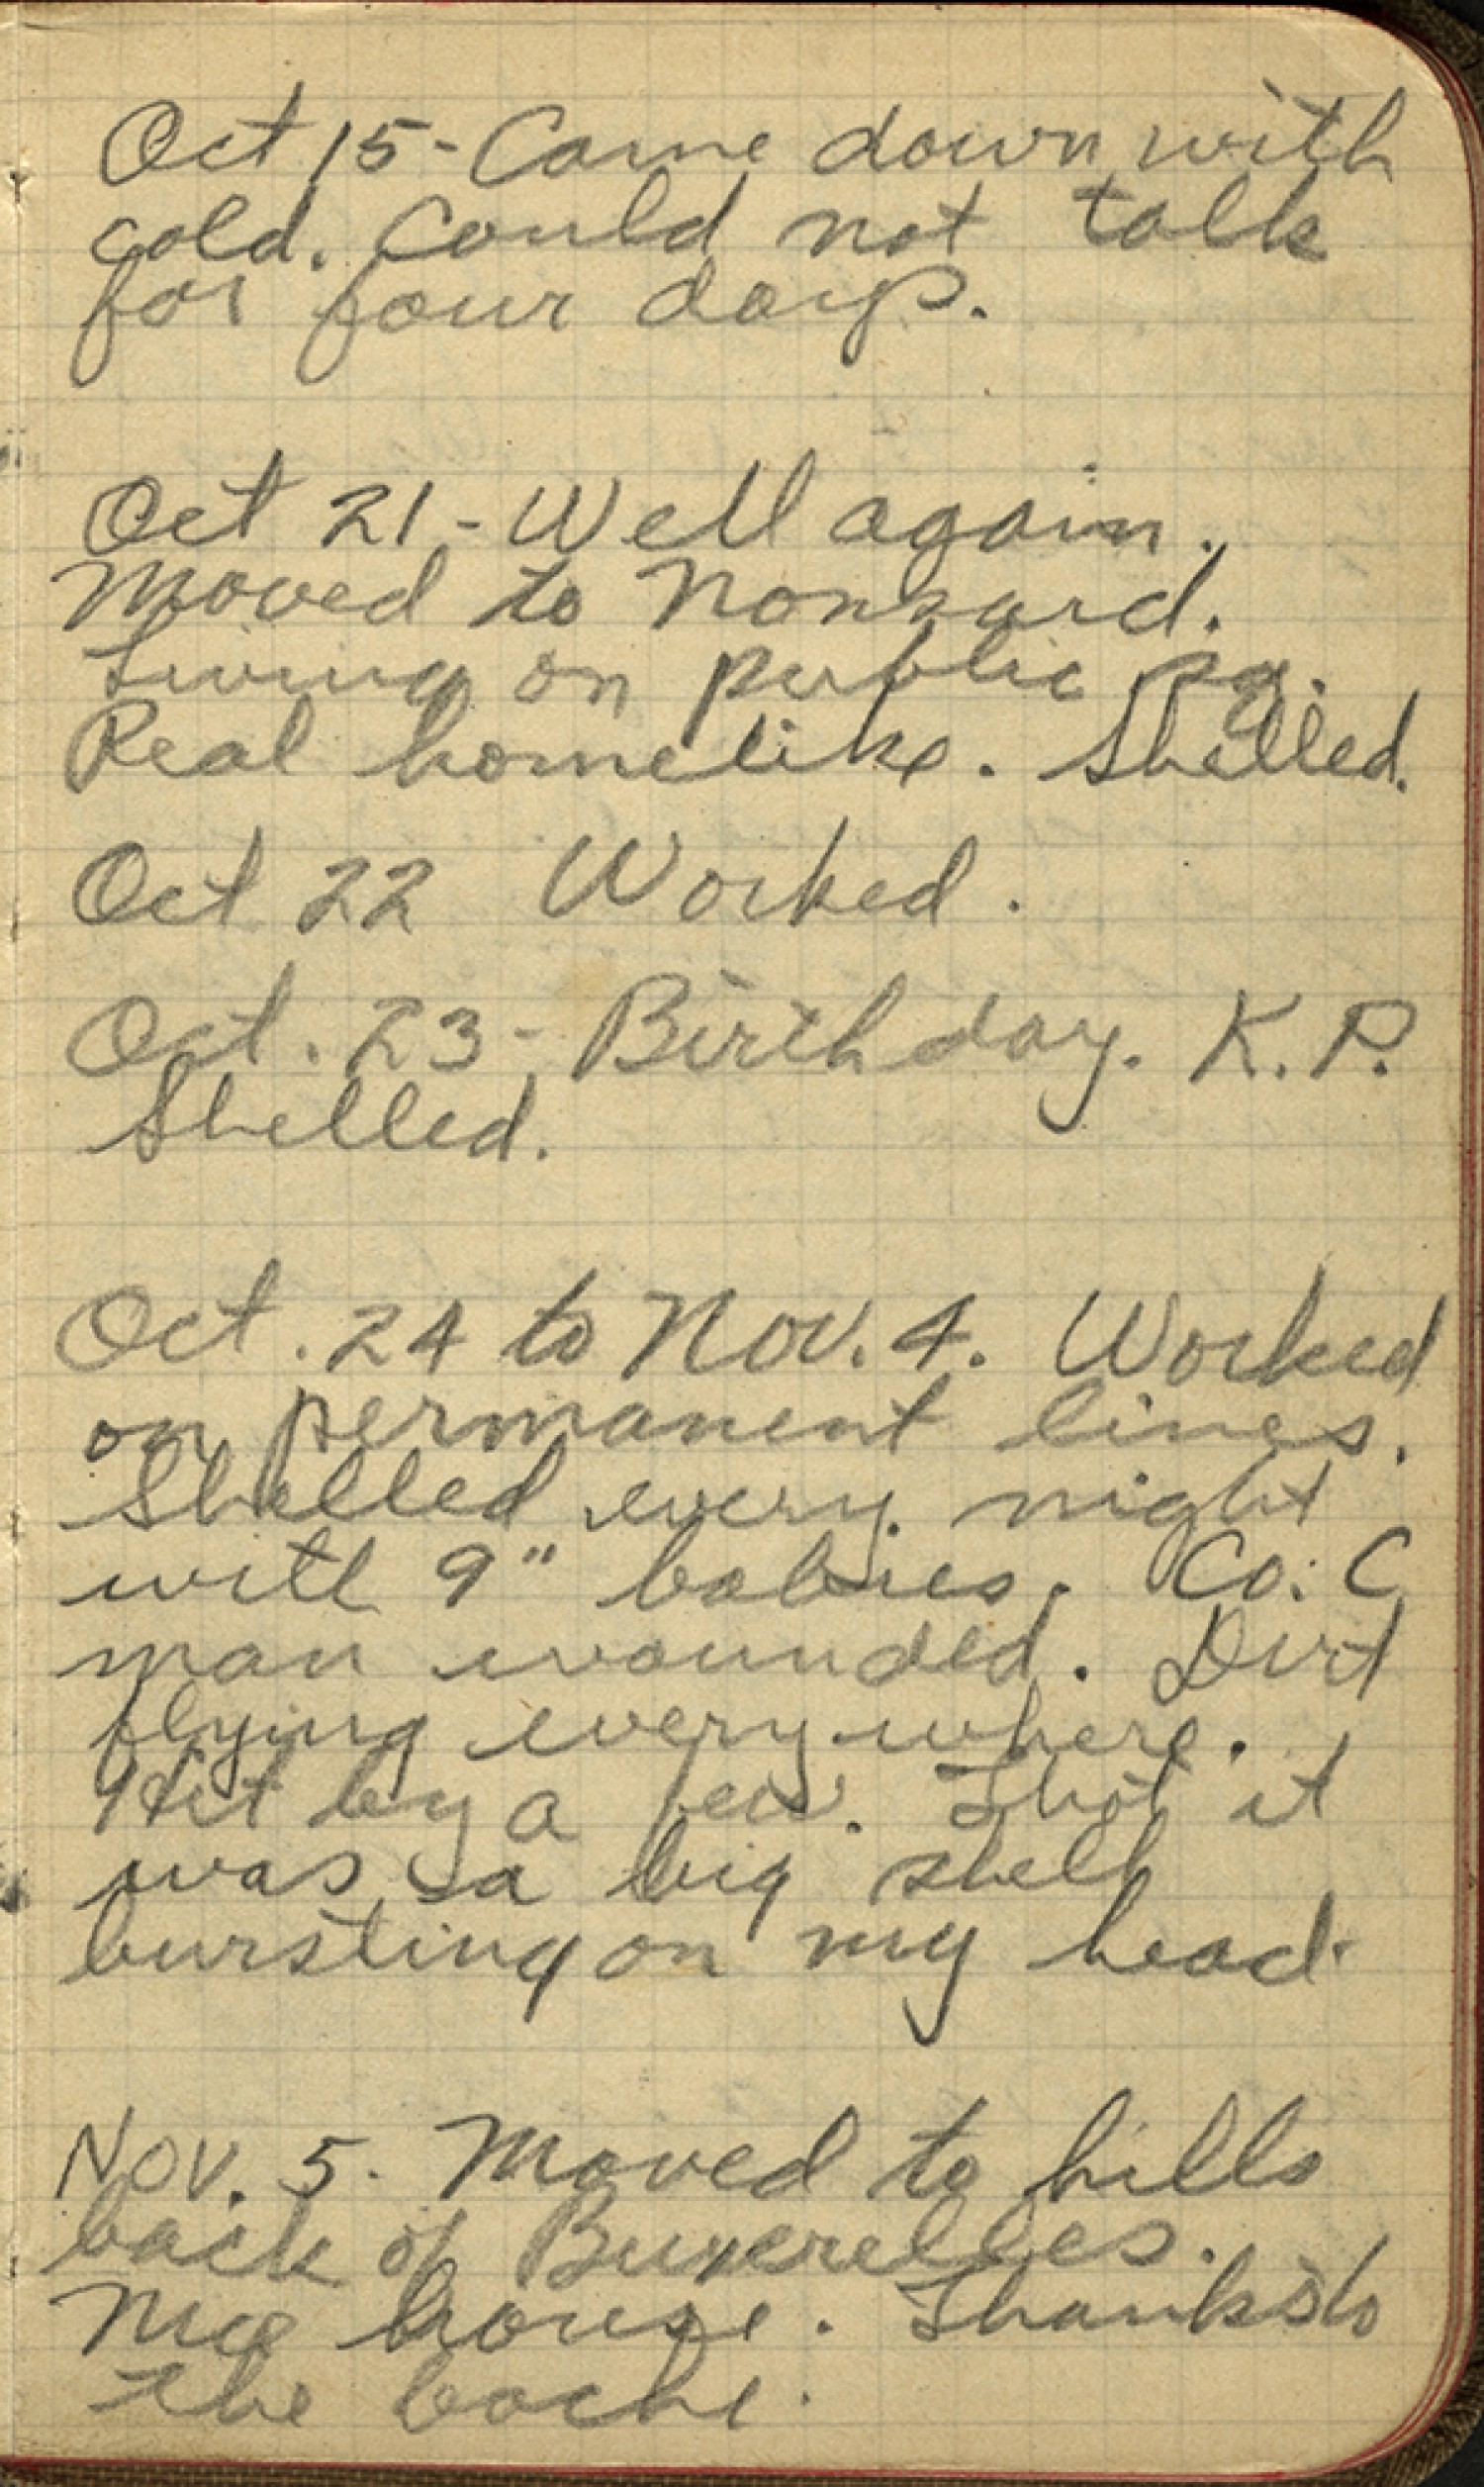 Oct 15 - Came down with
cold. Could not talk
for four days.
Oct 21 - Well again.
Moved to Nonsard.
Living on public sq.
Real homelike. Shelled.
Oct 22 Worked.
Oct. 23 - Birthday. K. P.
Shelled.
Oct. 24 to Nov. 4. Worked
on permanent lines.
Shelled every night
with 9" babies. Co. C
man wounded. Dirt
flying everywhere.
Hit by a few. Thot it
was a big shell
bursting on my head.
Nov. 5. Moved to hills
back of Buxerelles.
Nice house. Thanks to
the boche.